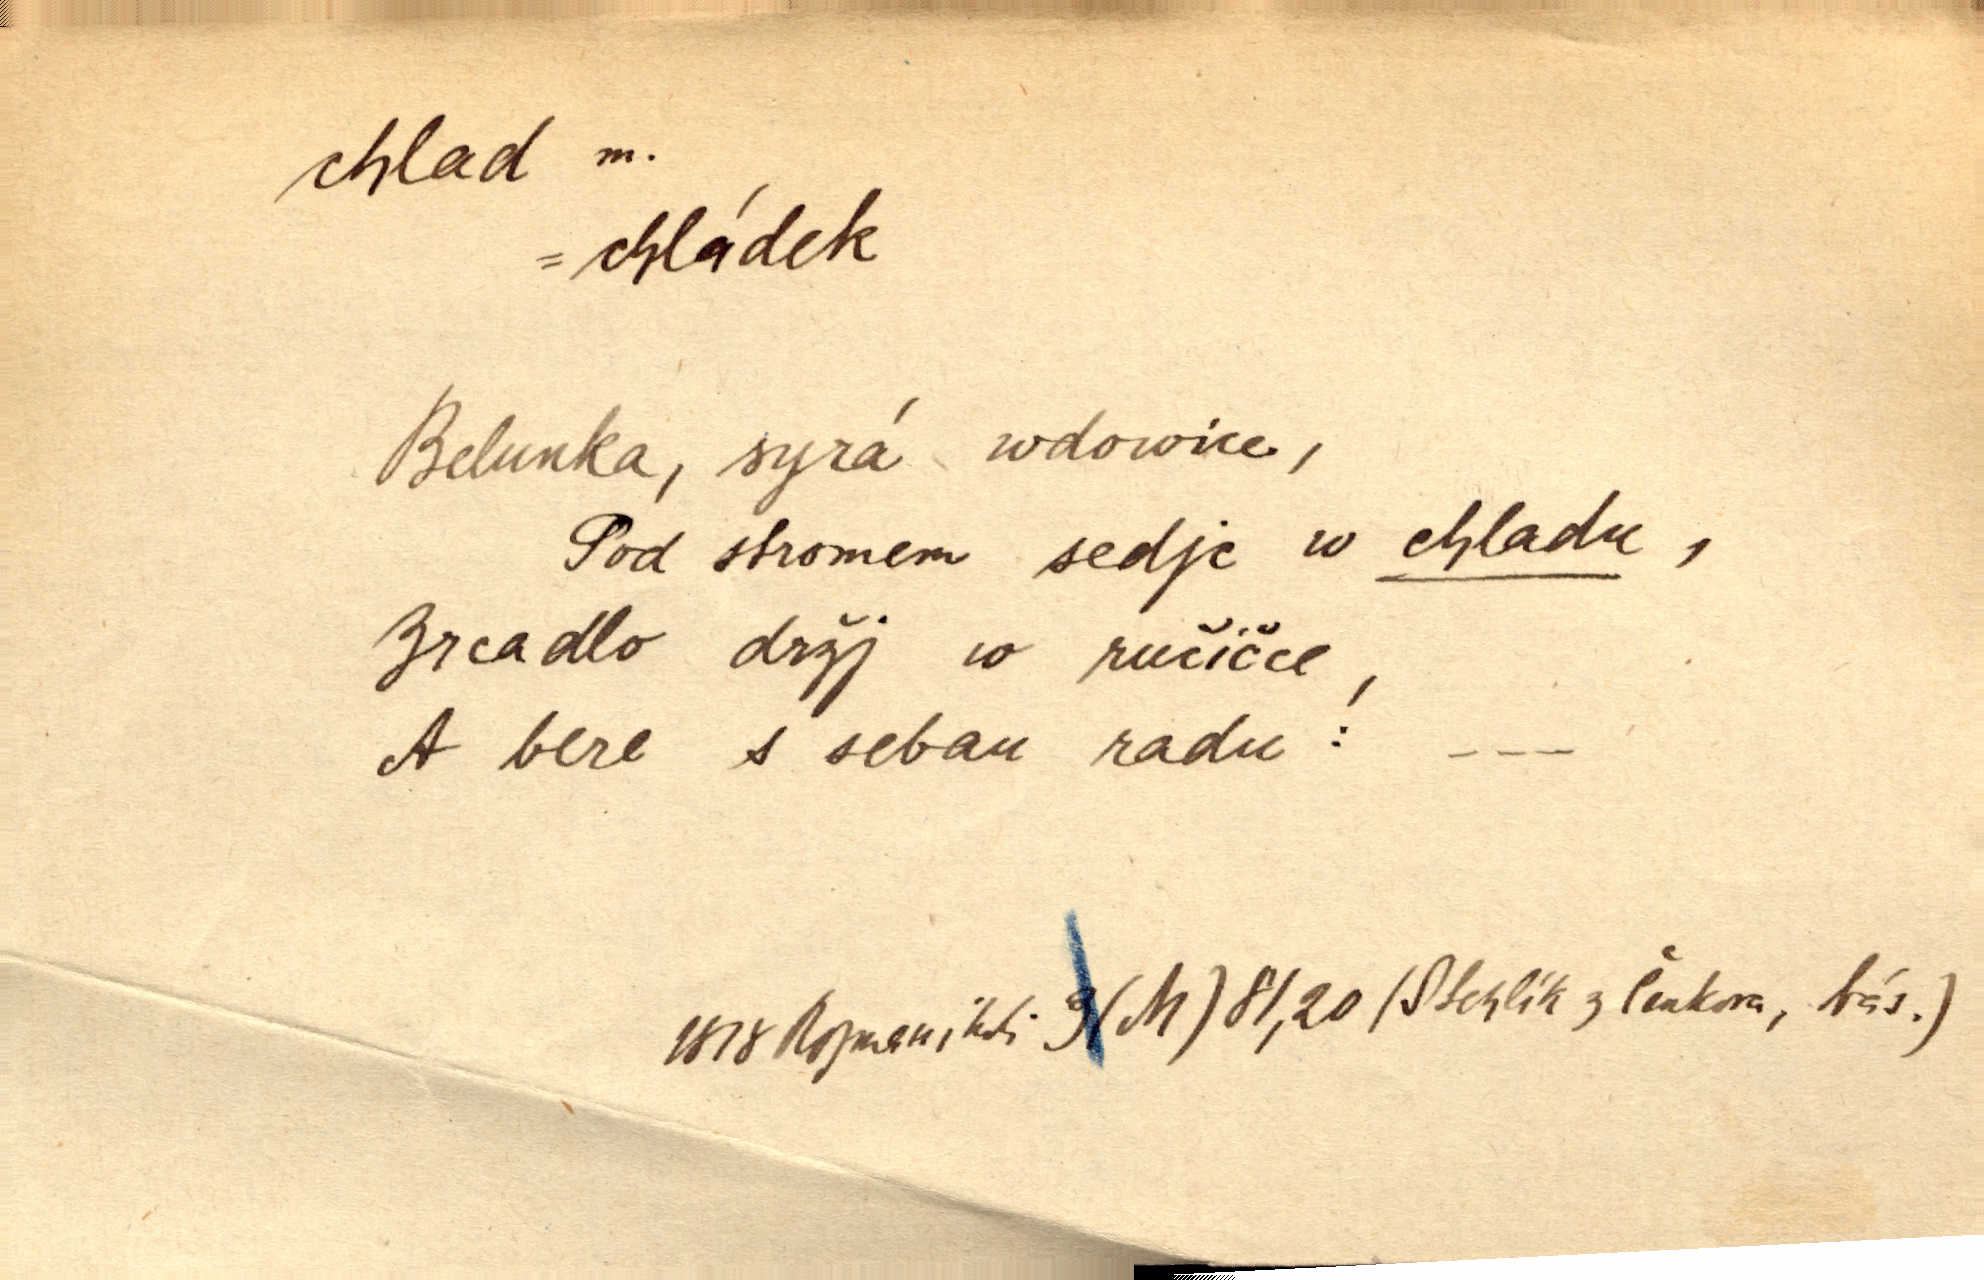 chlad m.
= chládek
Belunka, syrá wdowice,
Pod stromem sedje w chladu,
Zrcadlo držj w ručičce,
A bere s sebau radu: ---
1818 Rozman, (M) 81,20 (Stehlík z Čenkova, bás.)